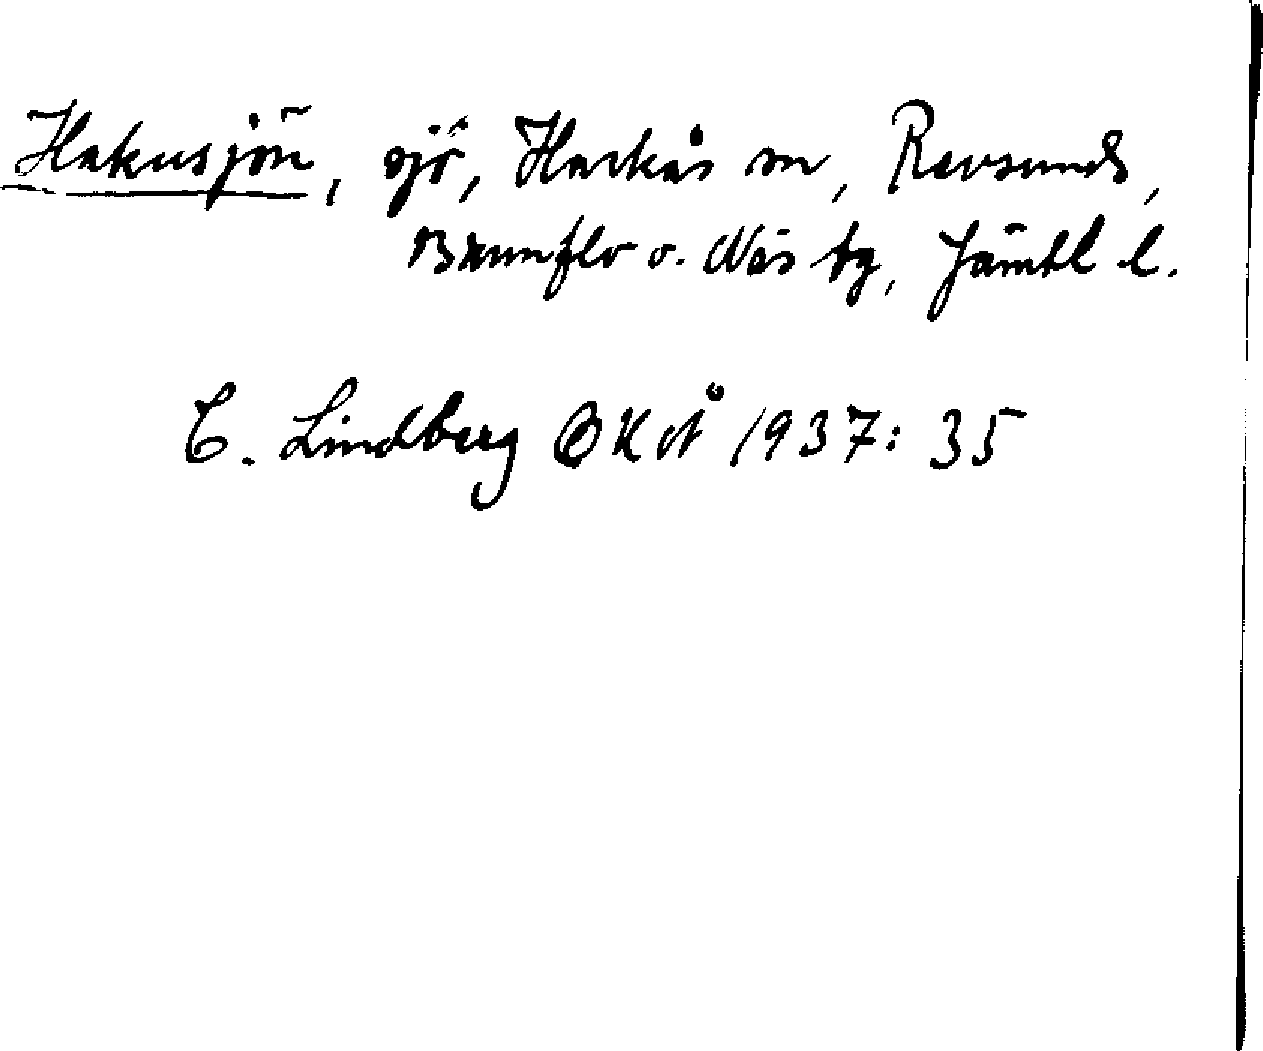 Hakusjön, sjö, Hackås sn, Revsunds,
Brunflo o. Näs tg, Jämtl l.
C. Lindberg OKNÅ 1937: 35